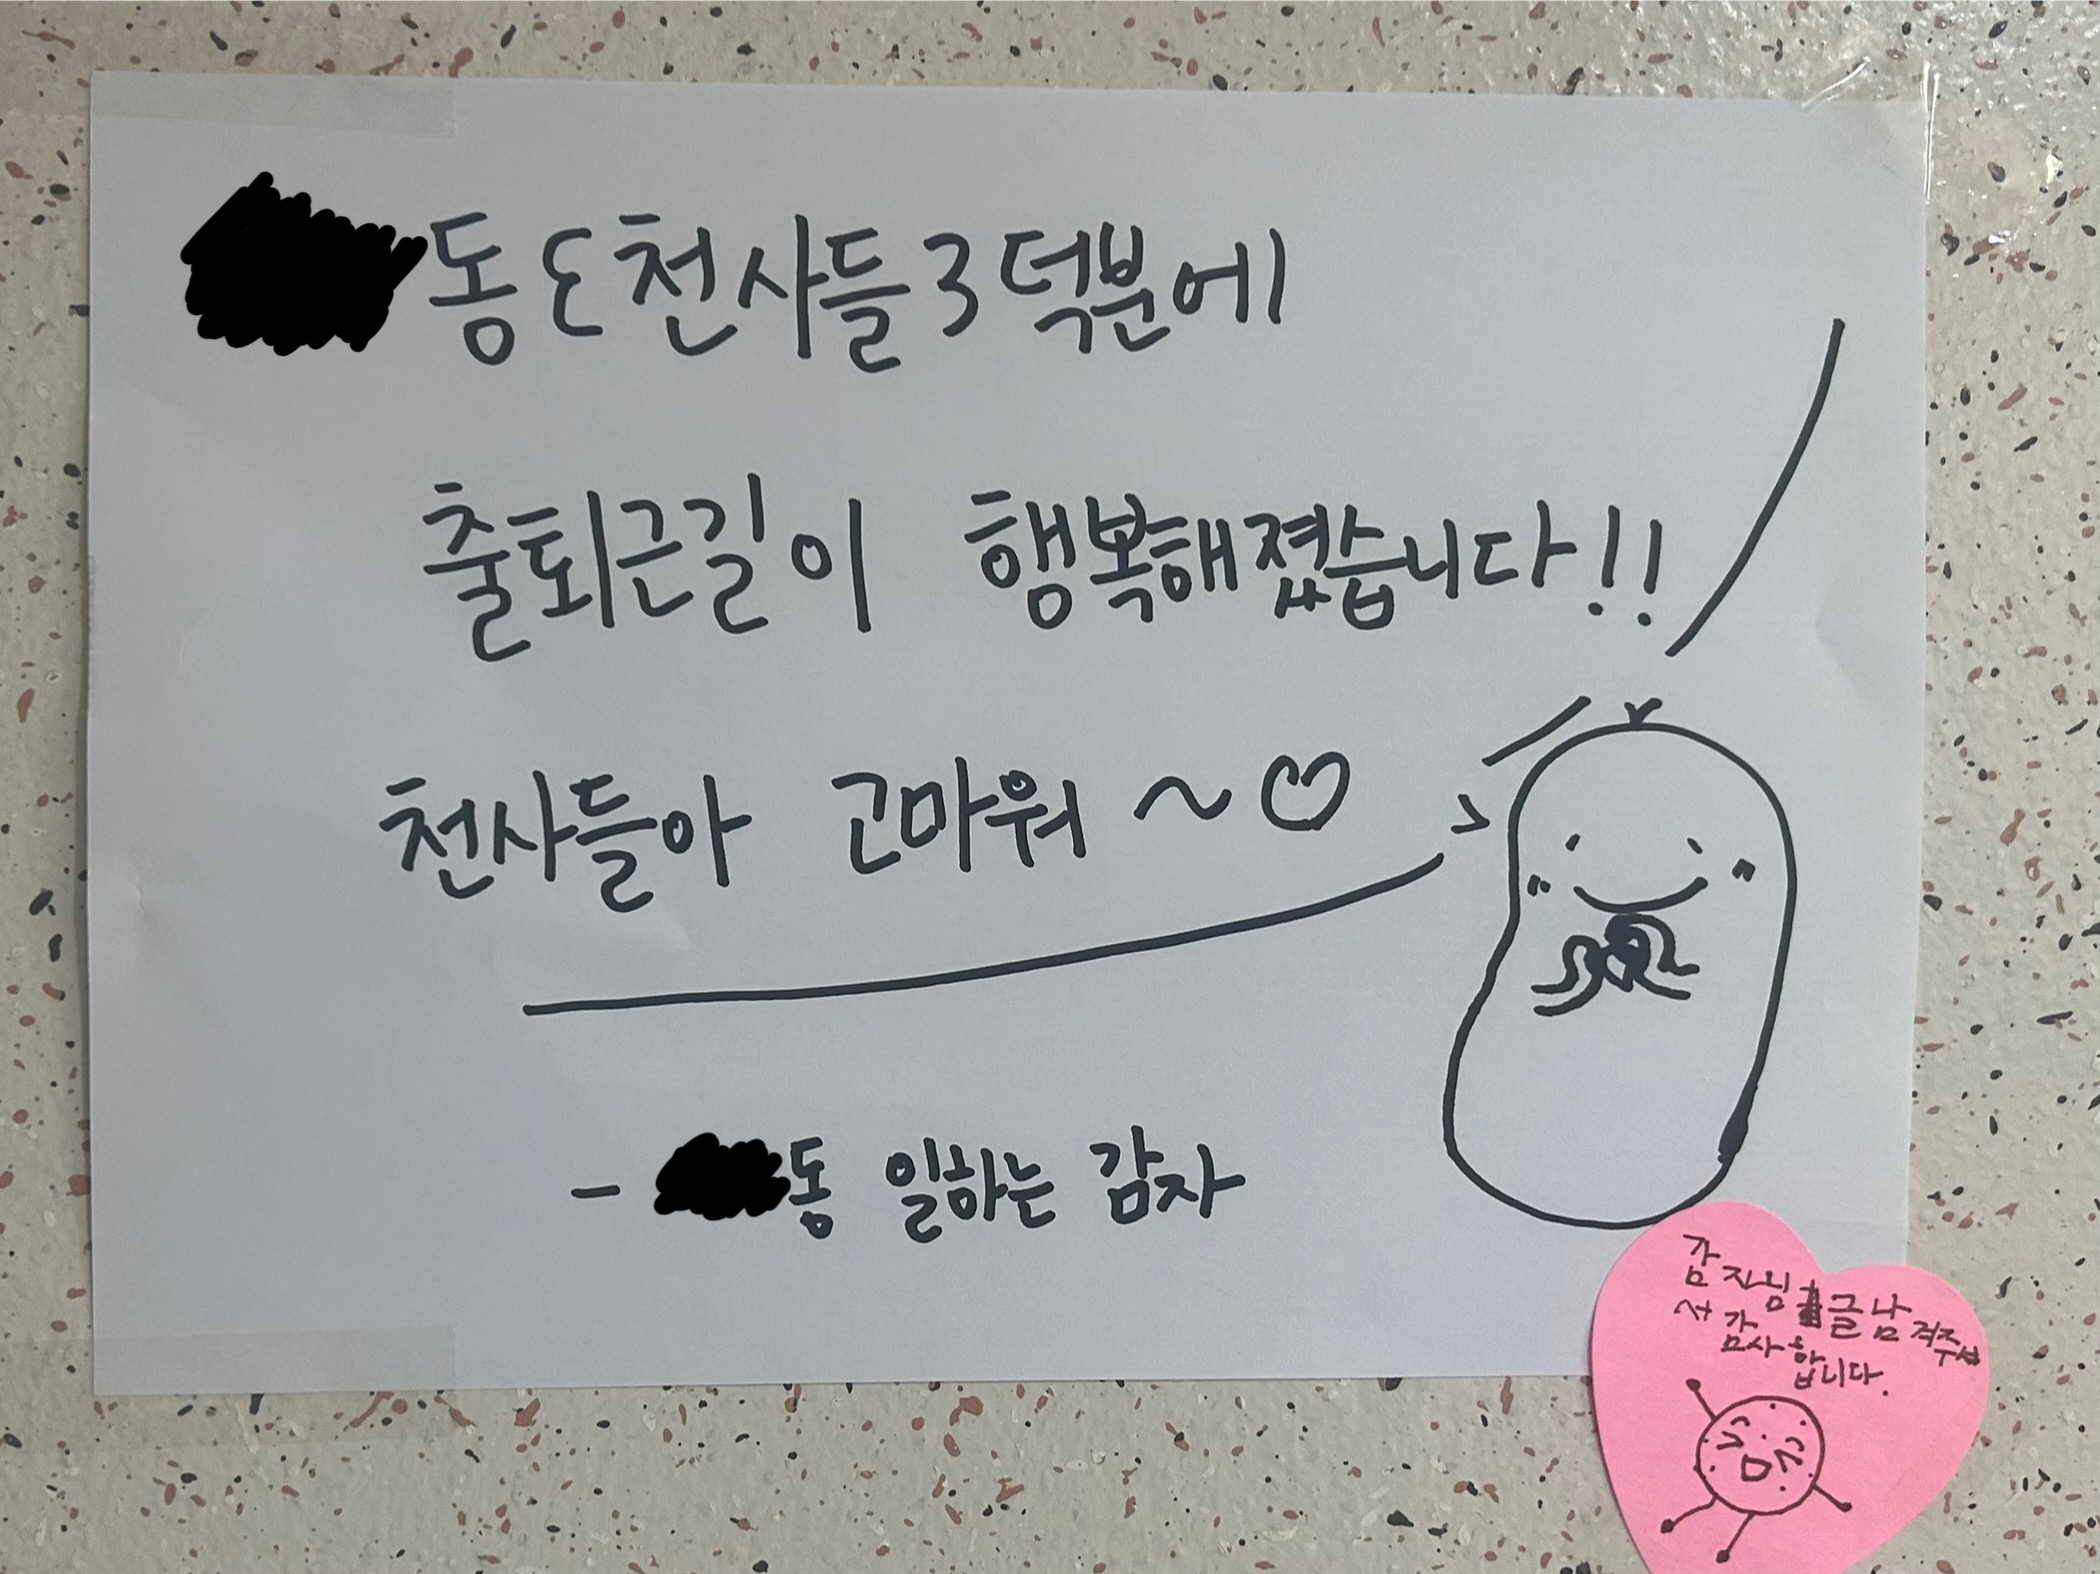 동 ε천사들3 덕분에
출퇴근길이 행복해졌습니다!!
천사들아 고마워 ~♡
- 동 일하는 감자
감자님 글 남겨주셔
서 감사합니다.